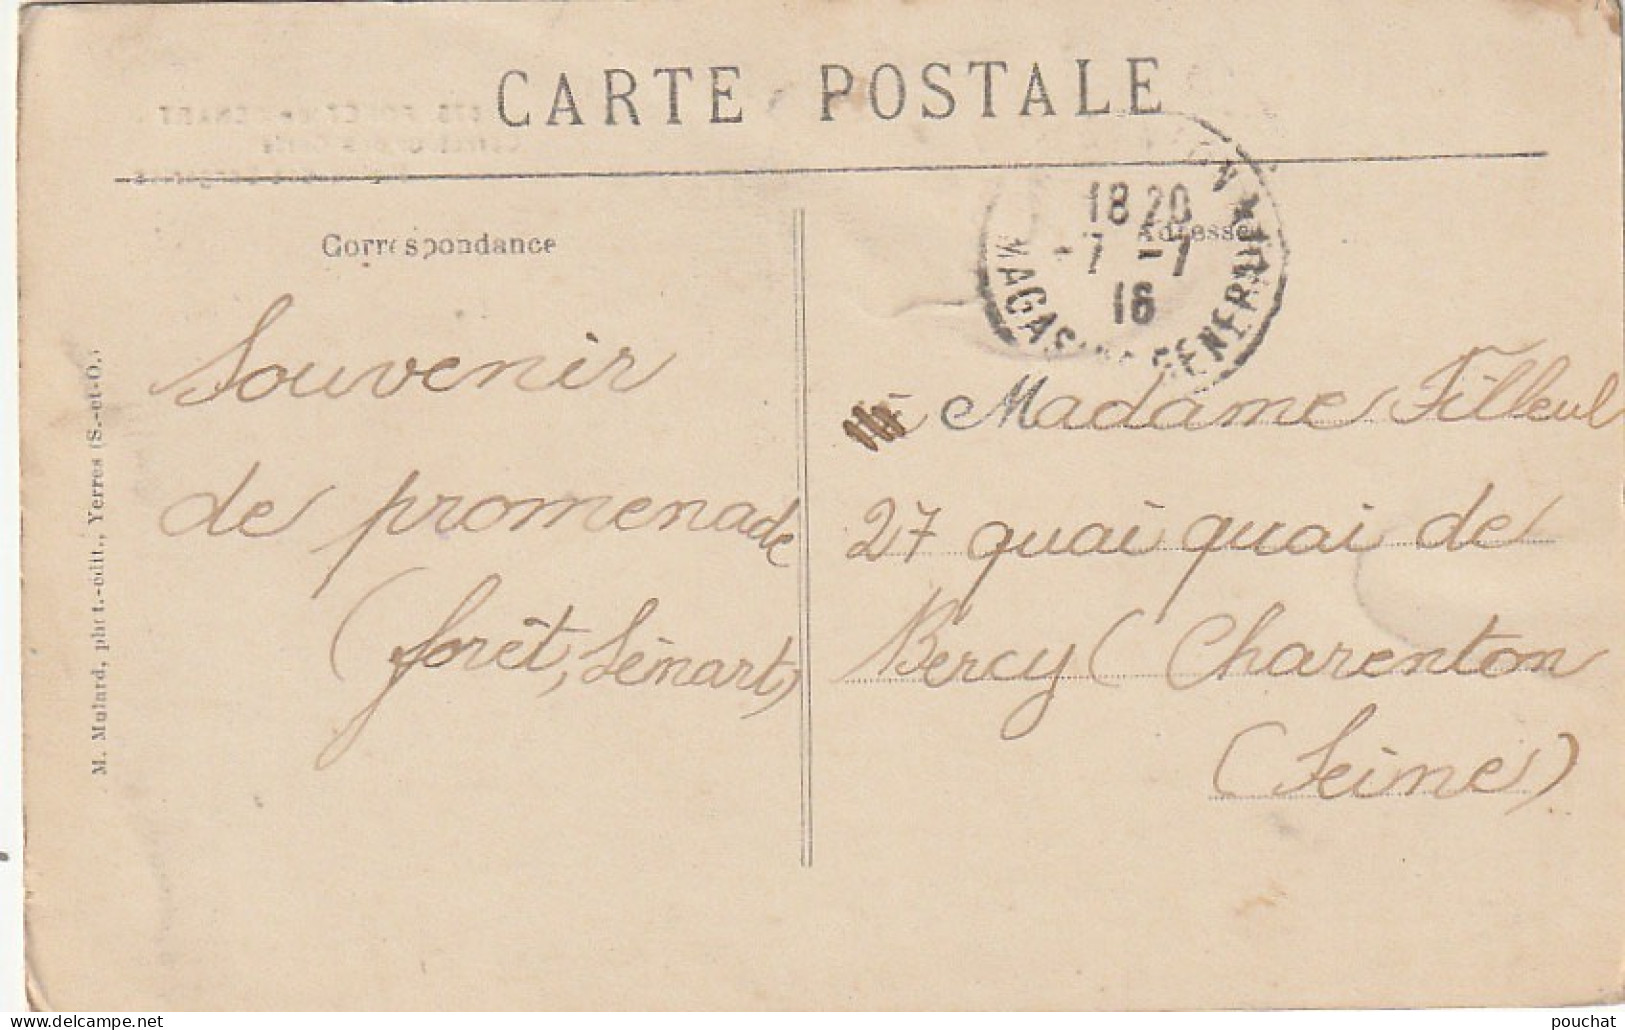 CARTE POSTALE
Correspondance
Adresse
18 20
7 -7
16
MAGAS GENERAUX
Souvenir
de promenade
(forêt, Sénart)
à Madame Filleul
27 quai quai de
Bercy (Charenton
(Seine)
M. Mulard, phot.-édit., Yerres (S.-et-O.)
pouchat